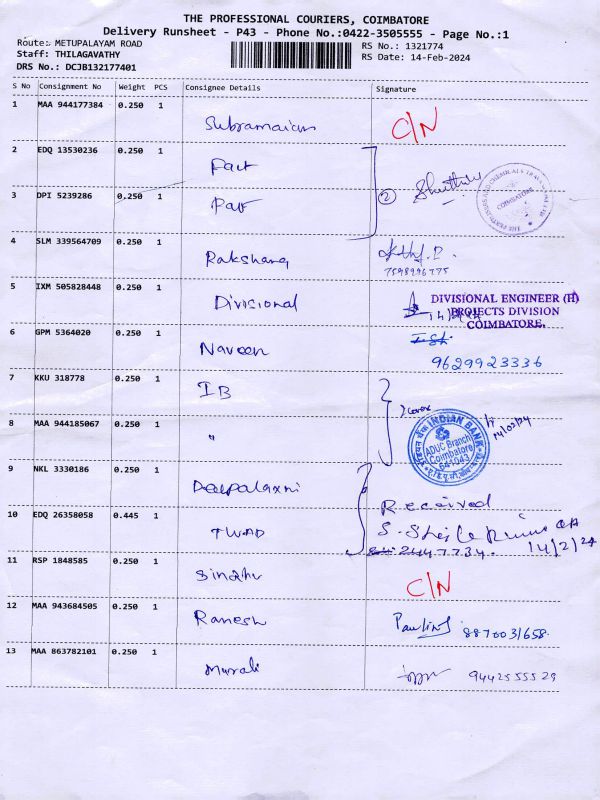 THE PROFESSIONAL COURIERS, COIMBATORE
Delivery Runsheet - P43 - Phone No.:0422-3505555 - Page No.:1
Route: METUPALAYAM ROAD
RS No.: 1321774
Staff: THILAGAVATHY
RS Date: 14-Feb-2024
DRS No.: DCJB132177401
S No Consignment No Weight PCS Consignee Details Signature
1 MAA 944177384 0.250 1
Subramaian C/N
2 EDQ 13530236 0.250 1
Fact
3 DPI 5239286 0.250 1
Fact
2
COIMBATORE
4 SLM 339564709 0.250 1
Rakshana
7598996775
5 IXM 505828448 0.250 1
Divisional
DIVISIONAL ENGINEER (H)
PROJECTS DIVISION
COIMBATORE.
6 GPM 5364020 0.250 1
Naveen
9629923336
7 KKU 318778 0.250 1
IB
2 cover
8 MAA 944185067 0.250 1
"
INDIAN BANK
ADUC Branch
Coimbatore
641043
14/02/24
9 NKL 3330186 0.250 1
Deepalaxmi
Received
10 EDQ 26358058 0.445 1
TWAD
2447734. 14/2/24
11 RSP 1848585 0.250 1
Sindhu C/N
12 MAA 943684505 0.250 1
Ramesh
8870031658.
13 MAA 863782101 0.250 1
Murali
9442555529